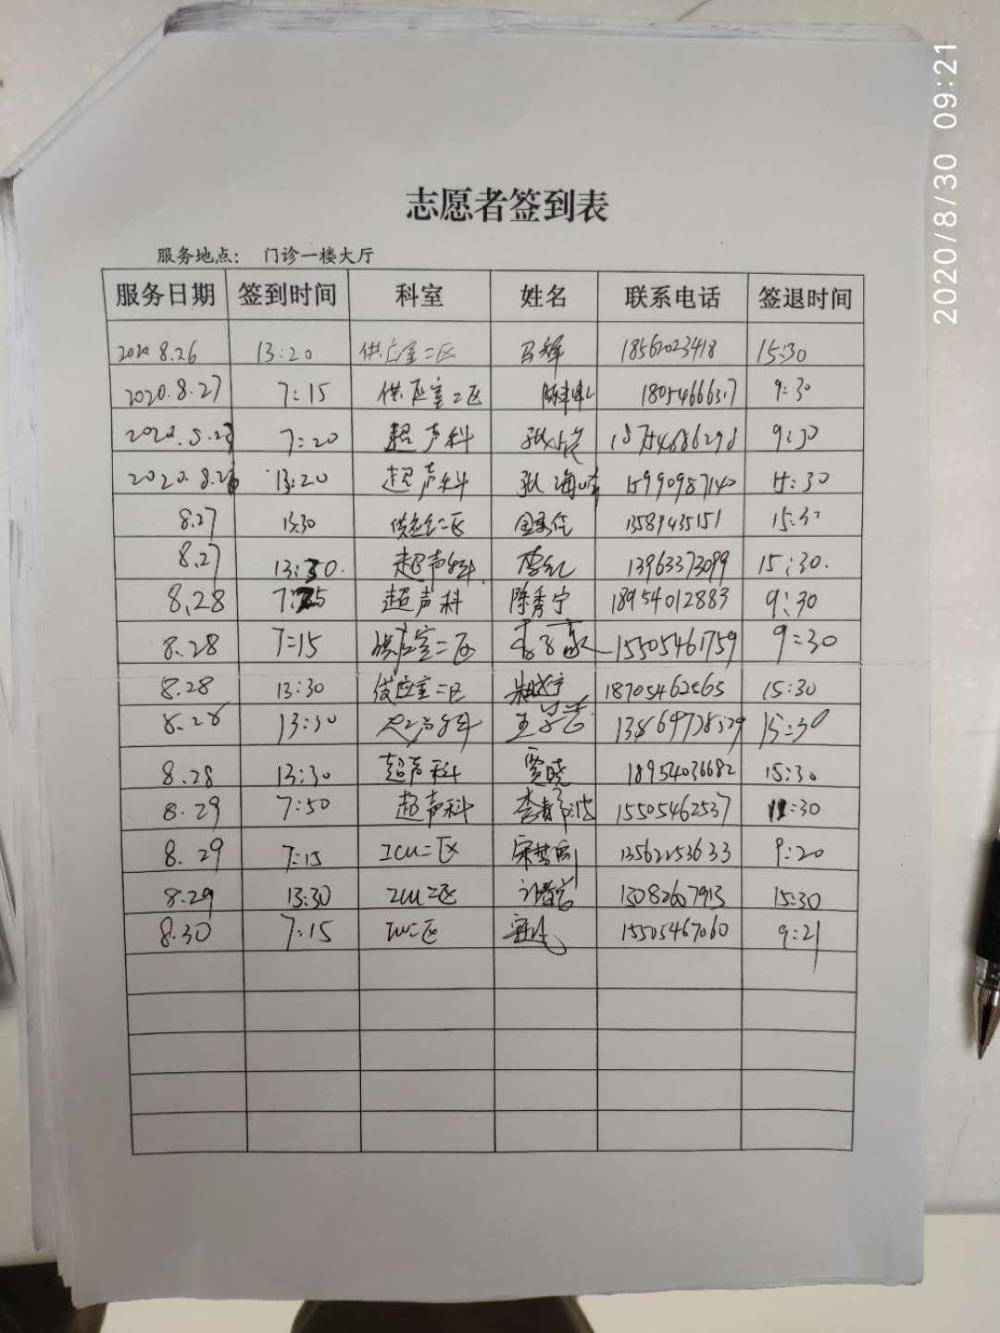 2020/8/30 09:21
志愿者签到表
服务地点： 门诊一楼大厅
服务日期 签到时间 科室 姓名 联系电话 签退时间
2020 8.26 13:20 供应室二区 马辉 18562023418 15:30
2020.8.27 7:15 供应室二区 18054666317 9:30
7:20 超声科 18754686296 9:30
13:20 超声科 张海峰 15990987140 15:30
8.27 13:30 供应室二区 13589435151 15:30
8.27 13:30. 超声科 李红 13963373099 15:30.
8.28 超声科 陈秀宁 18954012883 9:30
8.28 7:15 供应室二区 15505461759 9:30
8.28 13:30 供应室二区 18705462565 15:30
8.28 13:30 超声科 15:30
8.28 13:30 超声科 贾晓 18954036682 15:30
8.29 7:50 超声科 15505462537 11:30
8.29 7:15 ICU二区 13562253633 9:20
8.29 13:30 ICU二区 13082607913 15:30
8.30 7:15 ICU二区 15505467060 9:21